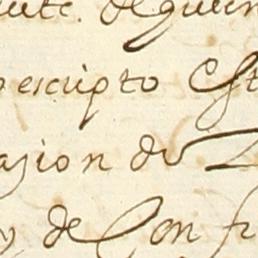 de quien
escripto Est
asion de
y de Con fr